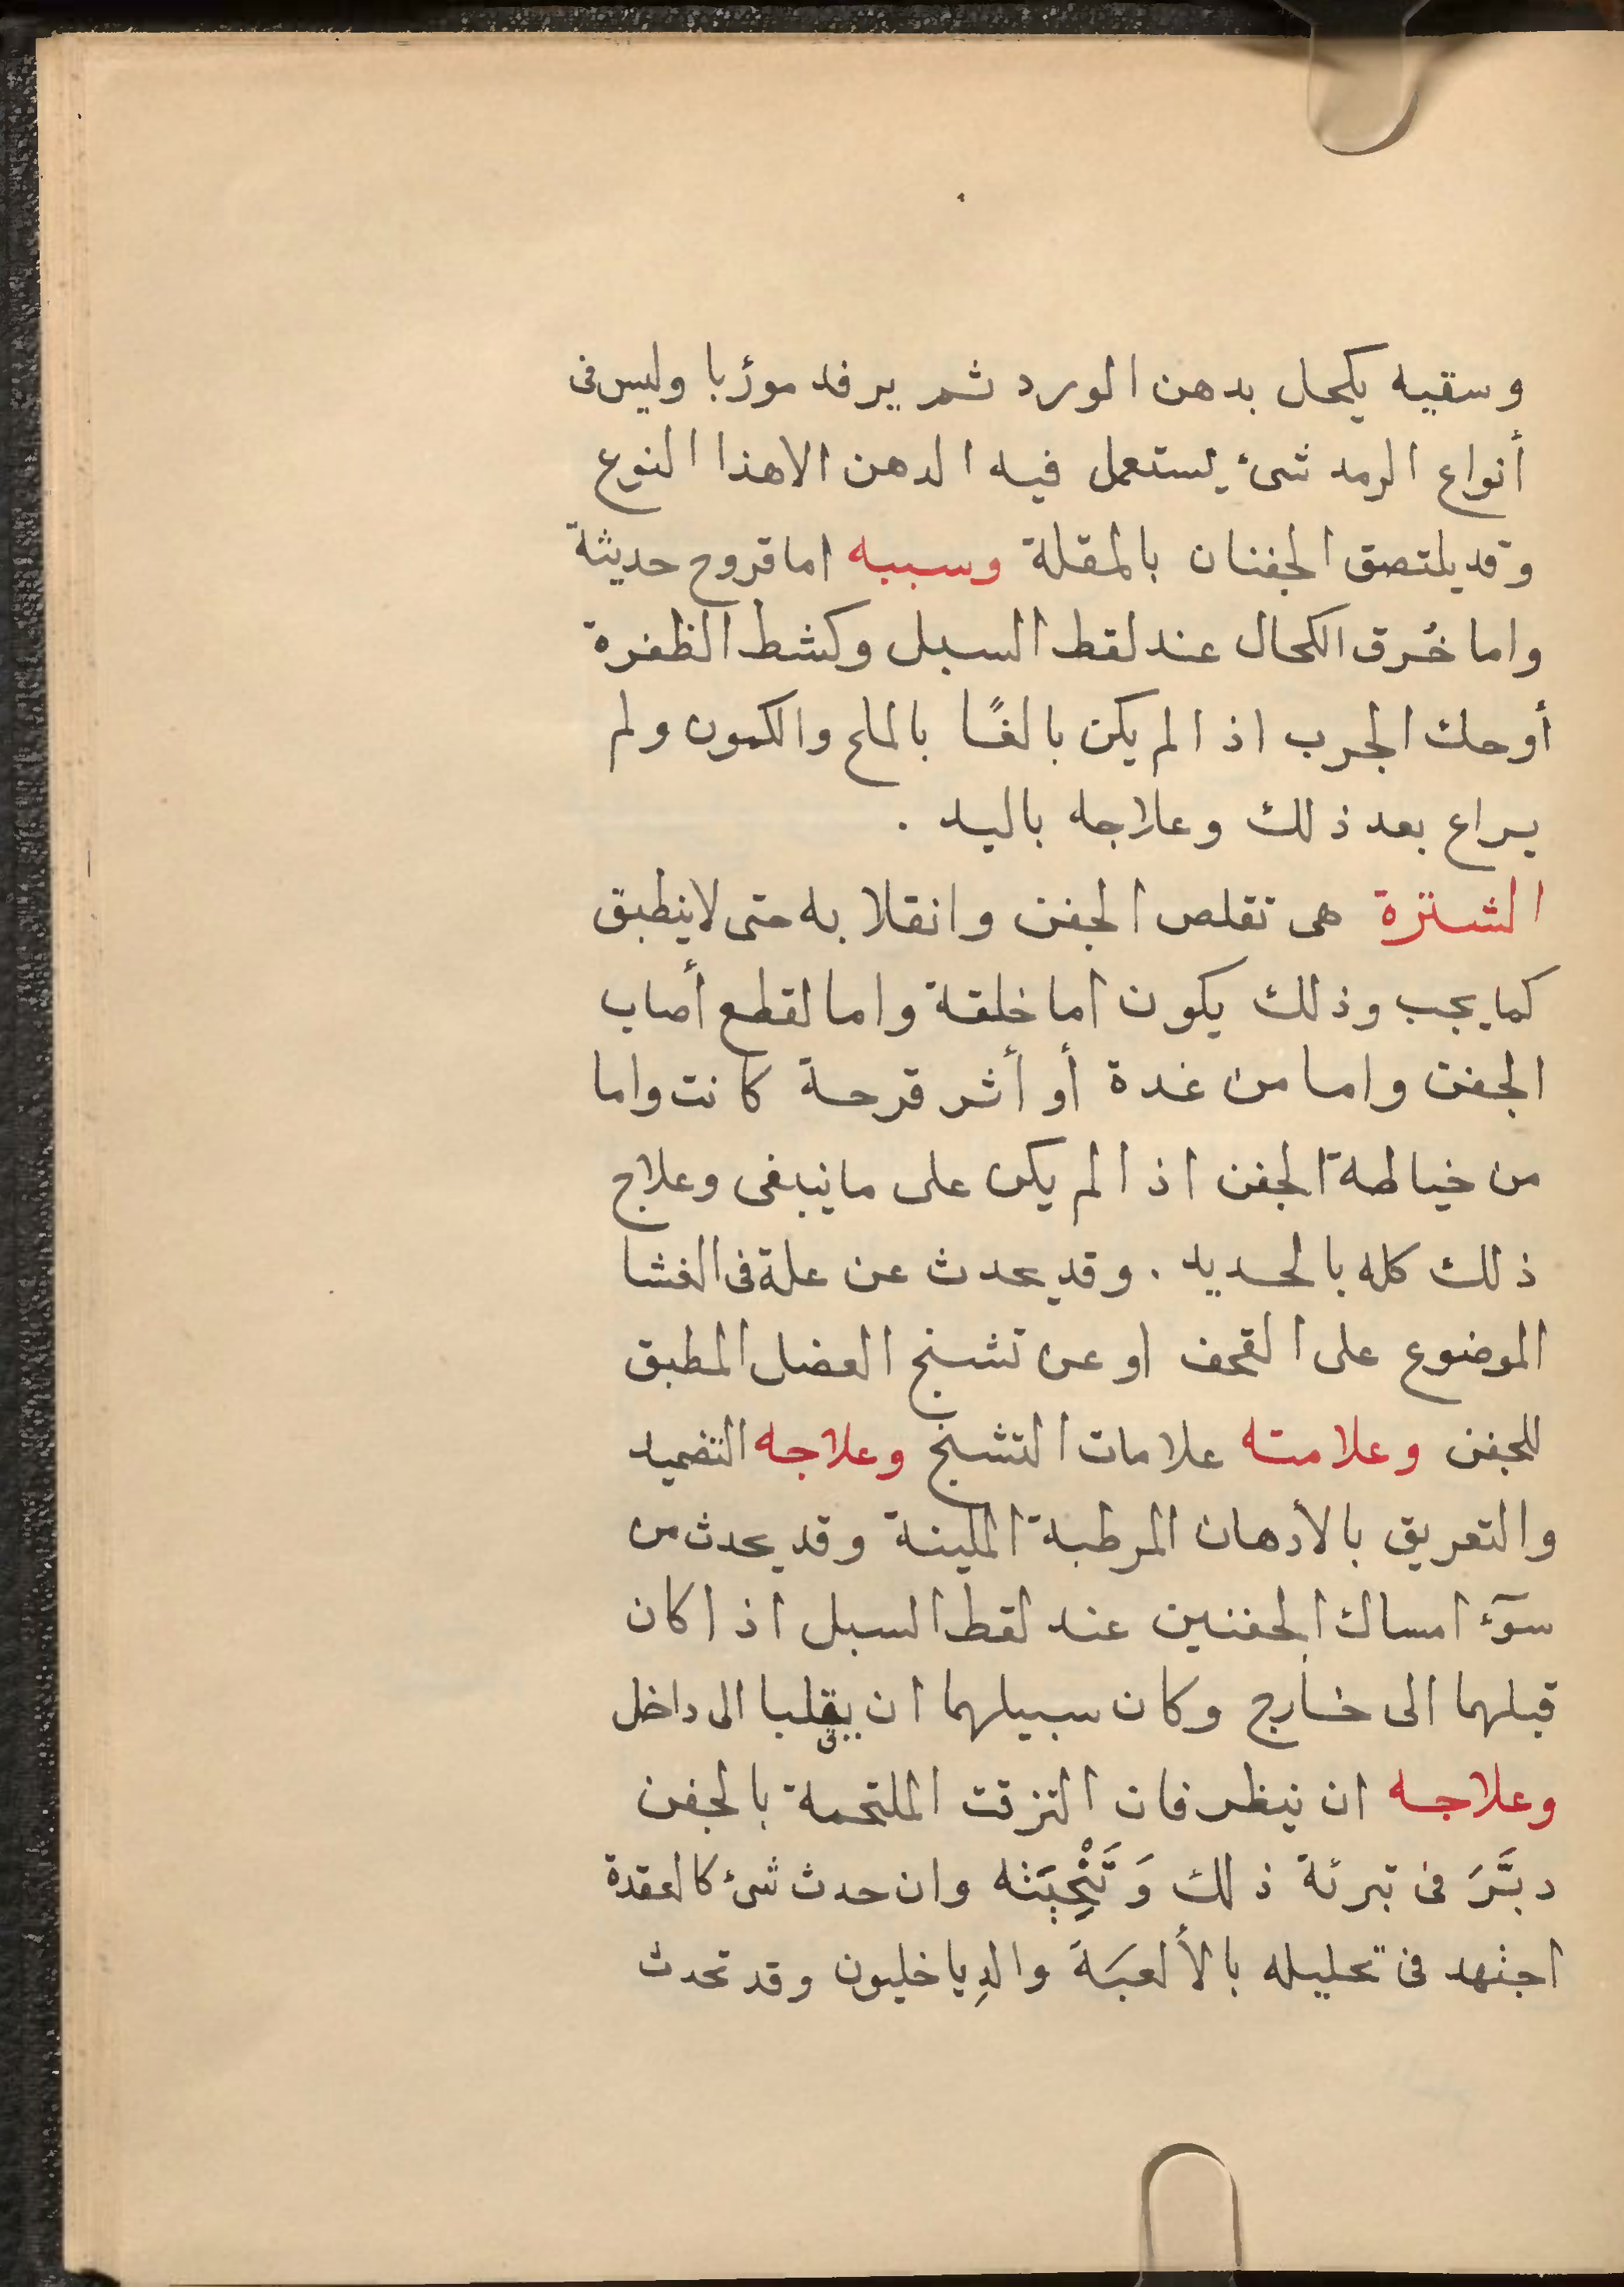 وسقيه يكحل بدهن الورد ثم يرفد مورّبا وليس فى
أنواع الرمد شىء يستعمل فيه الدهن الا هذا النوع
وقد يلتصق الجفنان بالمقلة وسببه اما قروح حديثة
واما خُرق الكحال عند لقط السبل وكشط الظفرة
أوحك الجرب اذ الم يكن بالغًا بالملح والكمون ولم
يراع بعد ذلك وعلاجه باليد .
الشترة هى تقلص الجفن وانقلابه حتى لاينطبق
كما يجب وذلك يكون اما خلقة واما لقطع أصاب
الجفن واما من غدة أو أثر قرحة كانت واما
من خياطة الجفن اذ الم يكن على ما ينبغى وعلاج
ذلك كله بالحديد . وقد يحدث عن علة فى الغشا
الموضوع على القحف او عن تشنج العضل المطبق
للجفن وعلامته علامات التشنج وعلاجه التضميد
والتعريق بالأدهان المرطبة الملينة وقد يحدث من
سوٓء امساك الجفنين عند لقط السبل اذ اكان
قبلهما الى خارج وكان سبيلهما ان يقلبا الى داخل
وعلاجه ان ينظر فان التزقت الملتحمة بالجفن
دبَّرَ فى تبرئة ذلك وان حدث شىء كالعقدة
اجتهد فى تحليله بالألعبَة والدِياخليون وقد تحدث